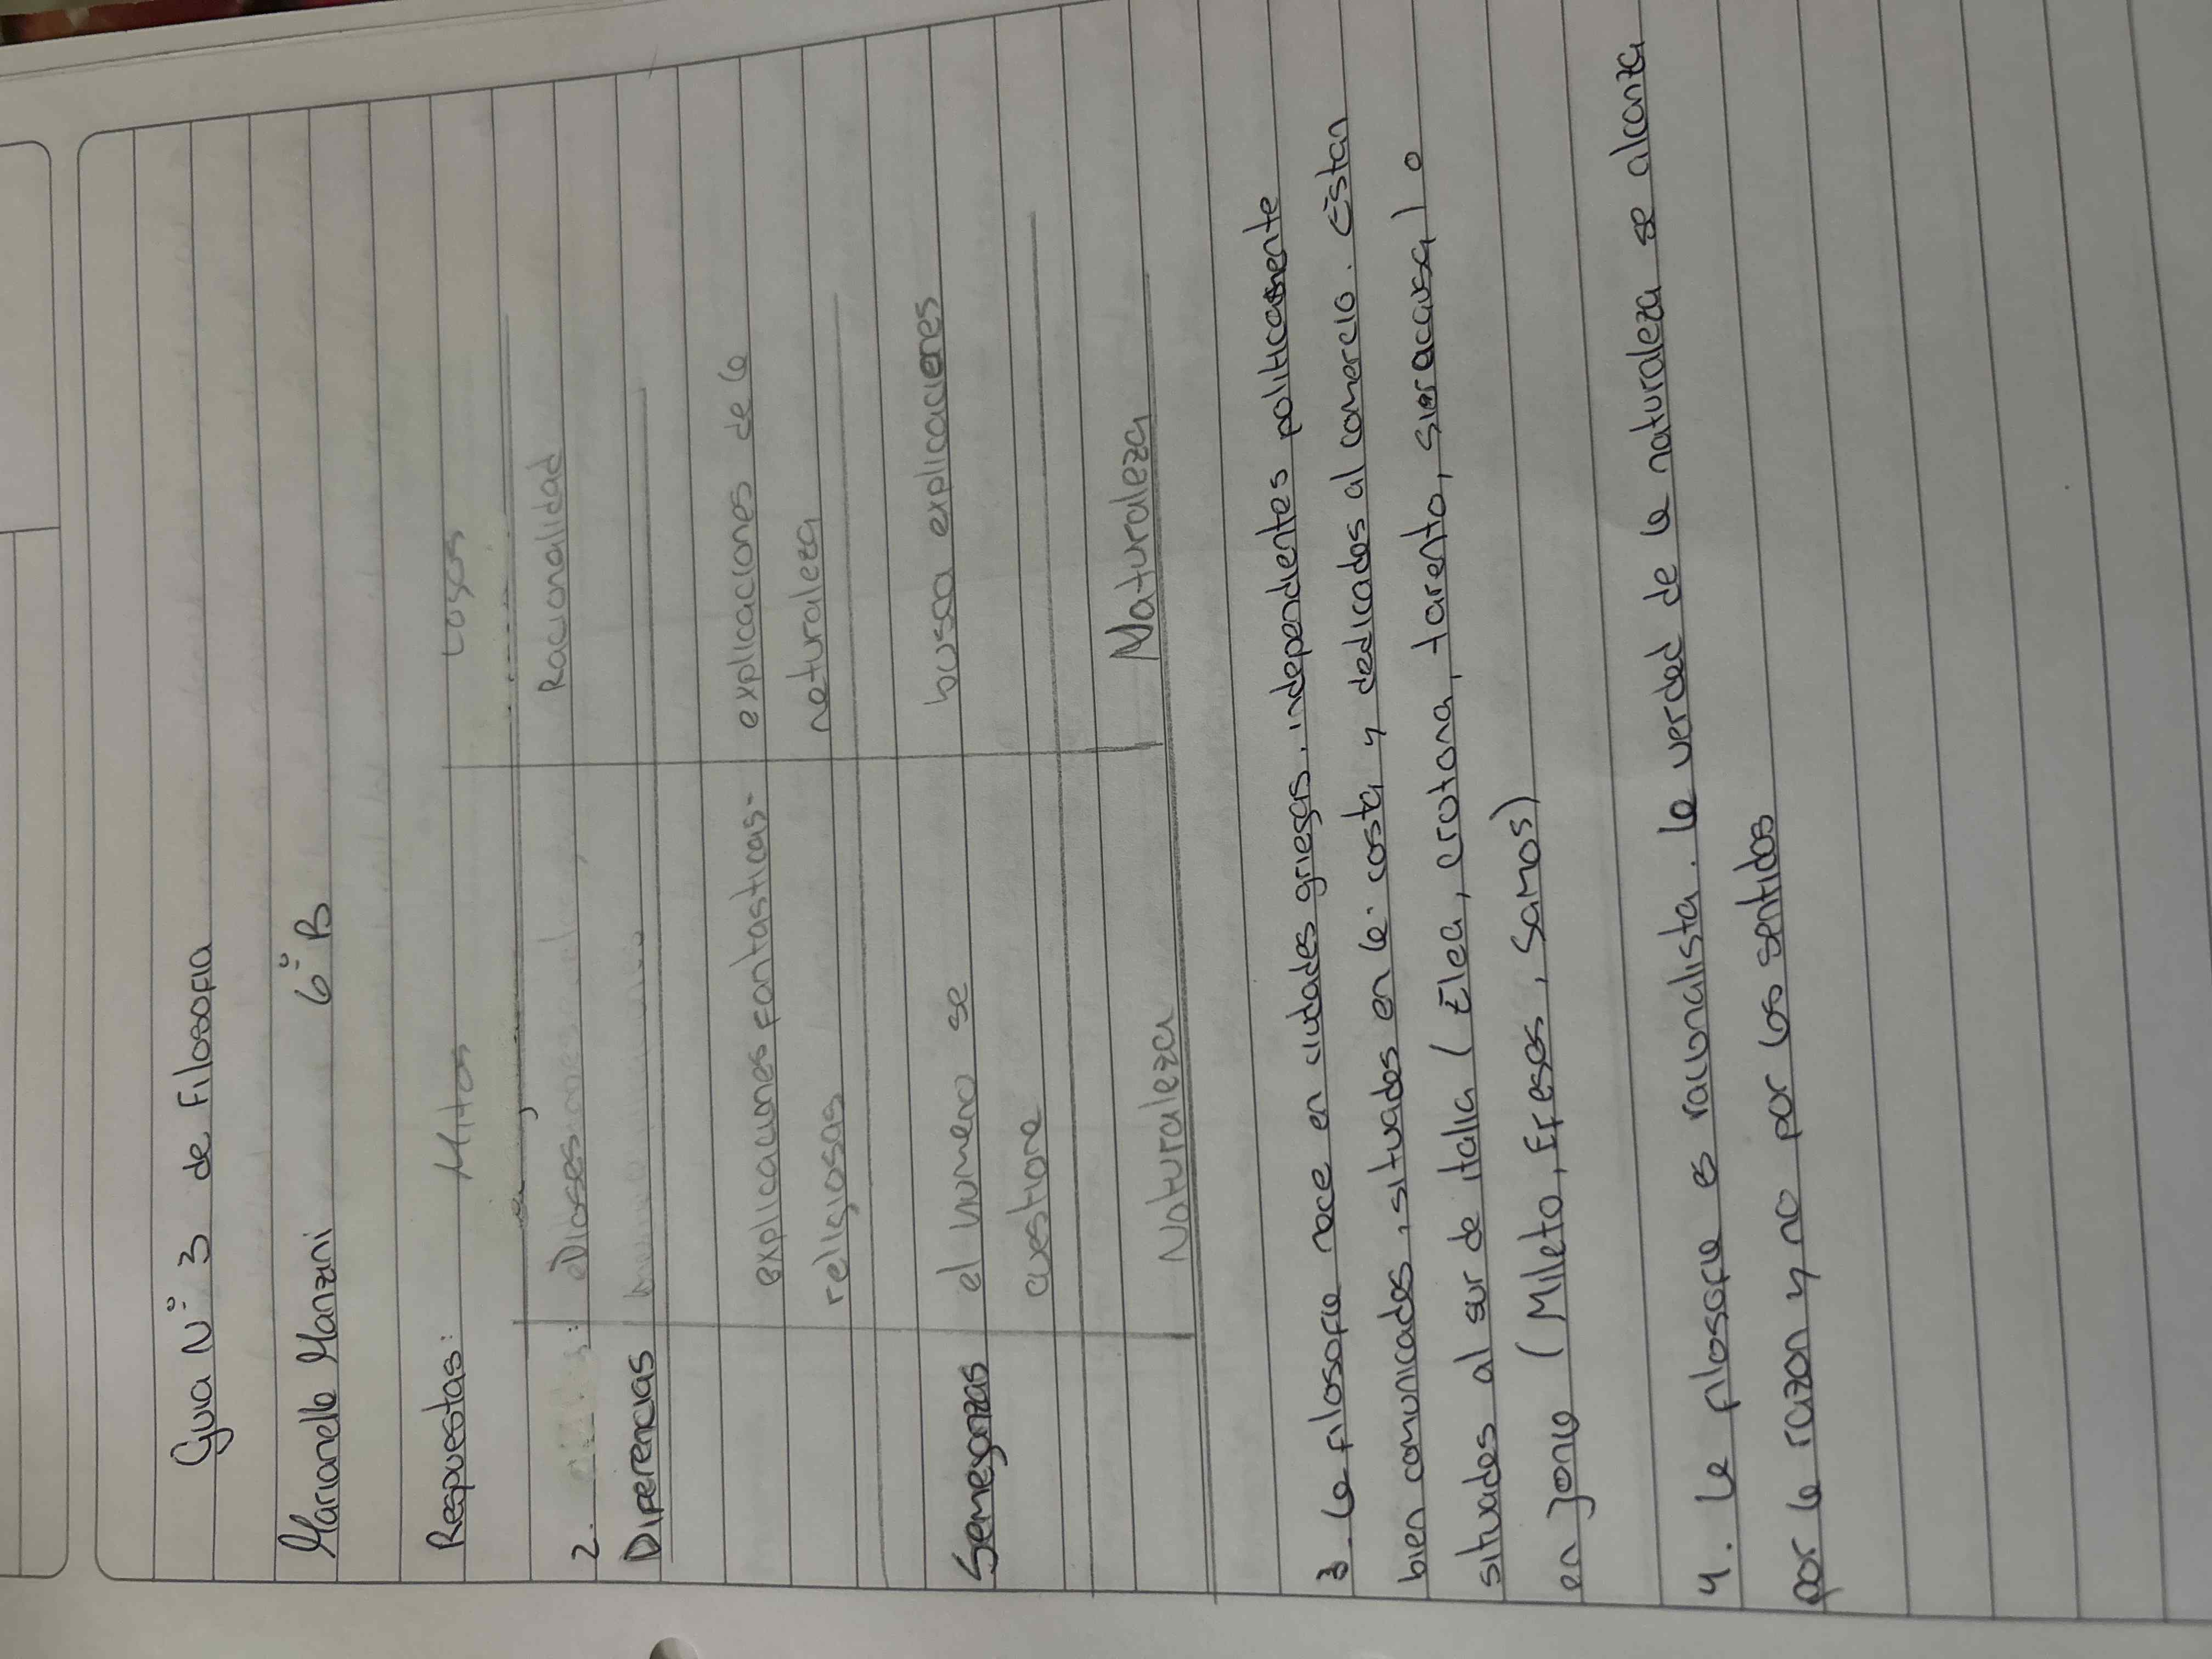 Guia N° 3 de Filosofia
Marianella Manzini 6° B
Respuestas: Mitos Logos
2. Dioses Racionalidad
Diferencias
explicaciones Fantasticas- explicaciones de la
religiosas naturaleza
Semejanzas el humano se busca explicaciones
cuestiona
Naturaleza Naturaleza
3. La filosofia nace en ciudades griegas, independientes politicamente
bien comunicados, situados en la costa y dedicados al comercio. Estan
situados al sur de italia ( Elea, crotona, tarento, siracausa) o
en Jonia (Mileto, Efeses, Samos)
4. La filosofia es racionalista. la verdad de la naturaleza se alcanza
por la razon y no por los sentidos